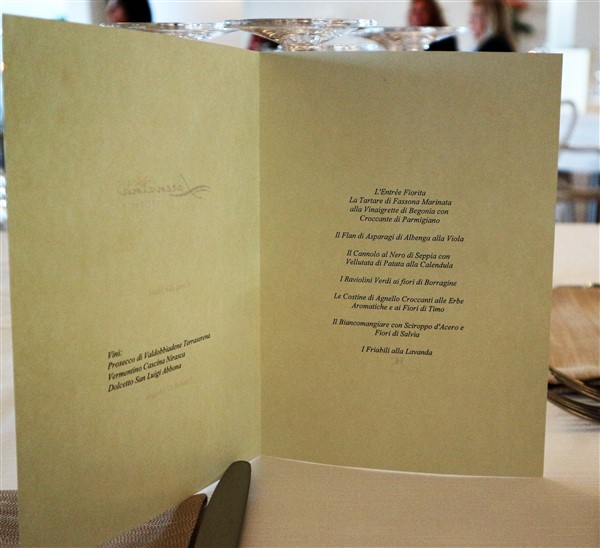 Vini:
Prosecco di Valdobbiadene Terraserena
Vermentino Cascina Nirasca
Dolcetto San Luigi Abbona
L'Entrèe Fiorita
La Tartare di Fassona Marinata
alla Vinaigrette di Begonia con
Croccante di Parmigiano
Il Flan di Asparagi di Albenga alla Viola
Il Cannolo al Nero di Seppia con
Vellutata di Patata alla Calendula
I Raviolini Verdi ai fiori di Borragine
Le Costine di Agnello Croccanti alle Erbe
Aromatiche e ai Fiori di Timo
Il Biancomangiare con Sciroppo d'Acero e
Fiori di Salvia
I Friabili alla Lavanda